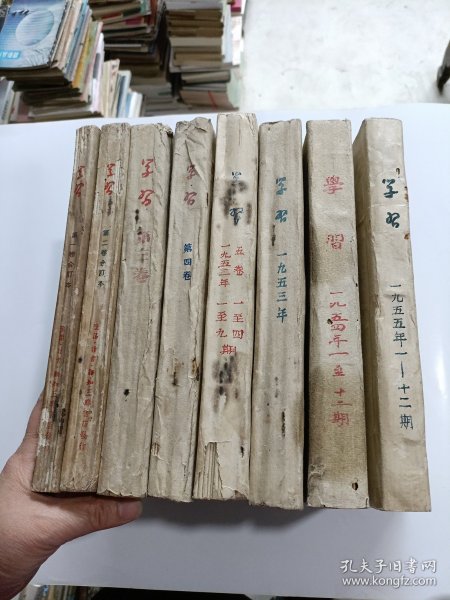 学习
第一卷合订本
学习
第二卷合订本
学习
第三卷
学习
第四卷
学习
五卷 一至四
一九五二年 一至九期
学习
一九五三年
學習
一九五四年一至十二期
学习
一九五五年一—十二期
孔夫子旧书网
www.kongfz.com